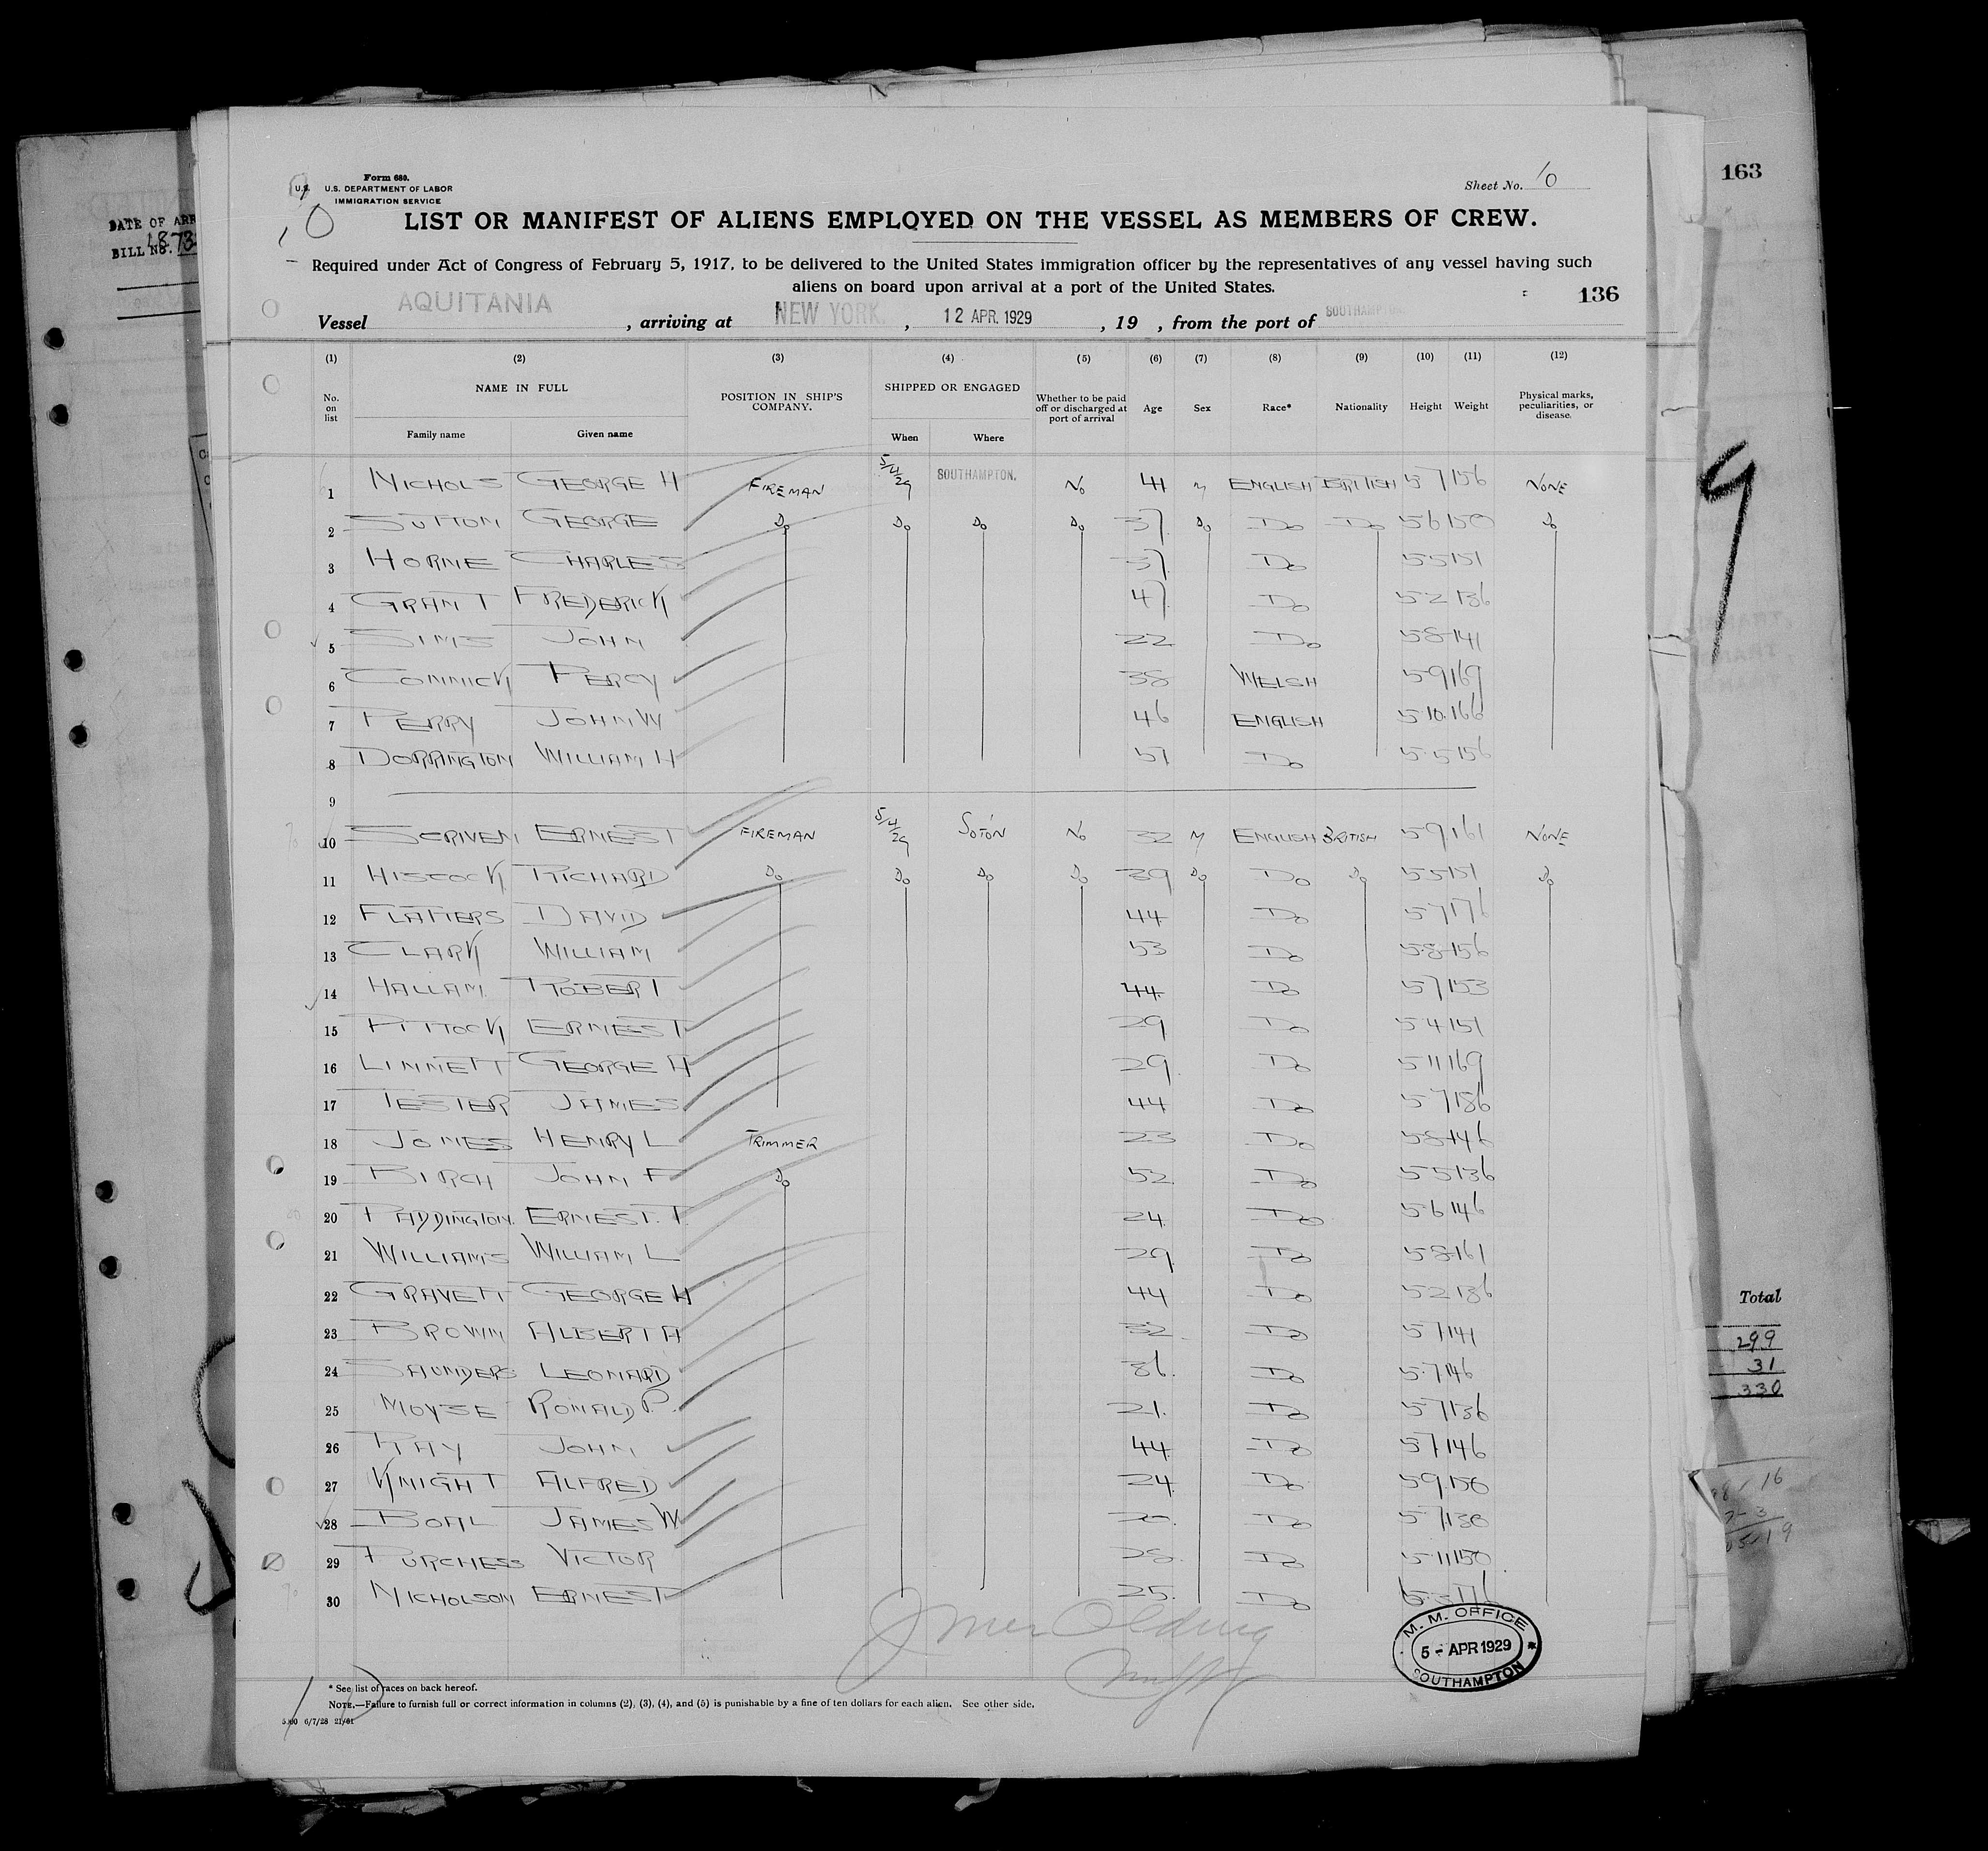 163
DATE OF ARR
BILL NO. 1873
Form 680.
U.S. U.S. DEPARTMENT OF LABOR
IMMIGRATION SERVICE
Sheet No. 10
10
LIST OR MANIFEST OF ALIENS EMPLOYED ON THE VESSEL AS MEMBERS OF CREW.
Required under Act of Congress of February 5, 1917, to be delivered to the United States immigration officer by the representatives of any vessel having such
aliens on board upon arrival at a port of the United States.
136
Vessel AQUITANIA, arriving at NEW YORK., 12 APR. 1929, 19 , from the port of SOUTHAMPTON.
(1) (2) (3) (4) (5) (6) (7) (8) (9) (10) (11) (12)
No. on list NAME IN FULL Family name Given name POSITION IN SHIP'S COMPANY. SHIPPED OR ENGAGED When Where Whether to be paid off or discharged at port of arrival Age Sex Race* Nationality Height Weight Physical marks, peculiarities, or disease.
1 NICHOLS GEORGE H FIREMAN 5/4/29 SOUTHAMPTON. No 41 M ENGLISH BRITISH 5 7 156 NONE
2 SUTTON GEORGE Do Do Do Do 37 Do Do Do 5 6 150 Do
3 HORNE CHARLES 37 Do 5 5 151
4 GRANT FREDERICK 47 Do 5 2 136
5 SIMS JOHN 22 Do 5 8 141
6 CONNICK PERCY 38 WELSH 5 9 169
7 PERRY JOHN W 46 ENGLISH 5 10 166
8 DORRINGTON WILLIAM H 51 Do 5 5 156
9
10 SCRIVEN ERNEST FIREMAN 5/4/29 SOTON No 32 M ENGLISH BRITISH 5 9 161 NONE
11 HISCOCK RICHARD Do Do Do Do 39 Do Do Do 5 5 151 Do
12 FLATTERS DAVID 44 Do 5 7 176
13 CLARK WILLIAM 53 Do 5 8 156
14 HALLAM ROBERT 44 Do 5 7 153
15 PITTOCK ERNEST 29 Do 5 4 151
16 LINNETT GEORGE H 29 Do 5 11 169
17 TESTER JAMES 44 Do 5 7 186
18 JONES HENRY L TRIMMER 23 Do 5 8 146
19 BIRCH JOHN F Do 52 Do 5 5 136
20 PADDINGTON ERNEST. T. 24 Do 5 6 146
21 WILLIAMS WILLIAM L 29 Do 5 8 161
22 GRAVETT GEORGE H 44 Do 5 2 136
23 BROWN ALBERT A 32 Do 5 7 141
24 SAUNDERS LEONARD 36 Do 5 7 146
25 MOYSE RONALD P. 21 Do 5 7 136
26 RAY JOHN 44 Do 5 7 146
27 KNIGHT ALFRED 24 Do 5 9 150
28 BOAL JAMES W Do 5 7 130
29 PURCHESS VICTOR 28 Do 5 11 150
30 NICHOLSON ERNEST 25 Do 5
M. M. OFFICE
5 - APR 1929
SOUTHAMPTON
* See list of races on back hereof.
NOTE.—Failure to furnish full or correct information in columns (2), (3), (4), and (5) is punishable by a fine of ten dollars for each alien. See other side.
6/7/28
Total
299
31
330
9